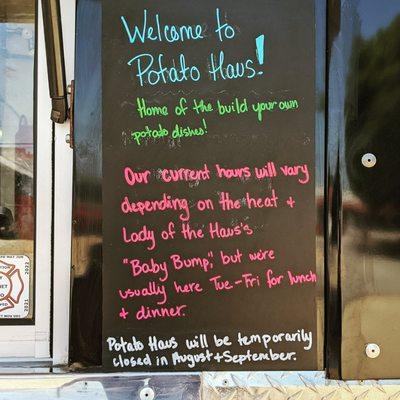 Welcome to
Potato Haus!
Home of the build your own
potato dishes!
Our current hours will vary
depending on the heat +
Lady of the Haus's
"Baby Bump," but we're
usually here Tue-Fri for lunch
+ dinner.
Potato Haus will be temporarily
closed in August + September.
2022
2021